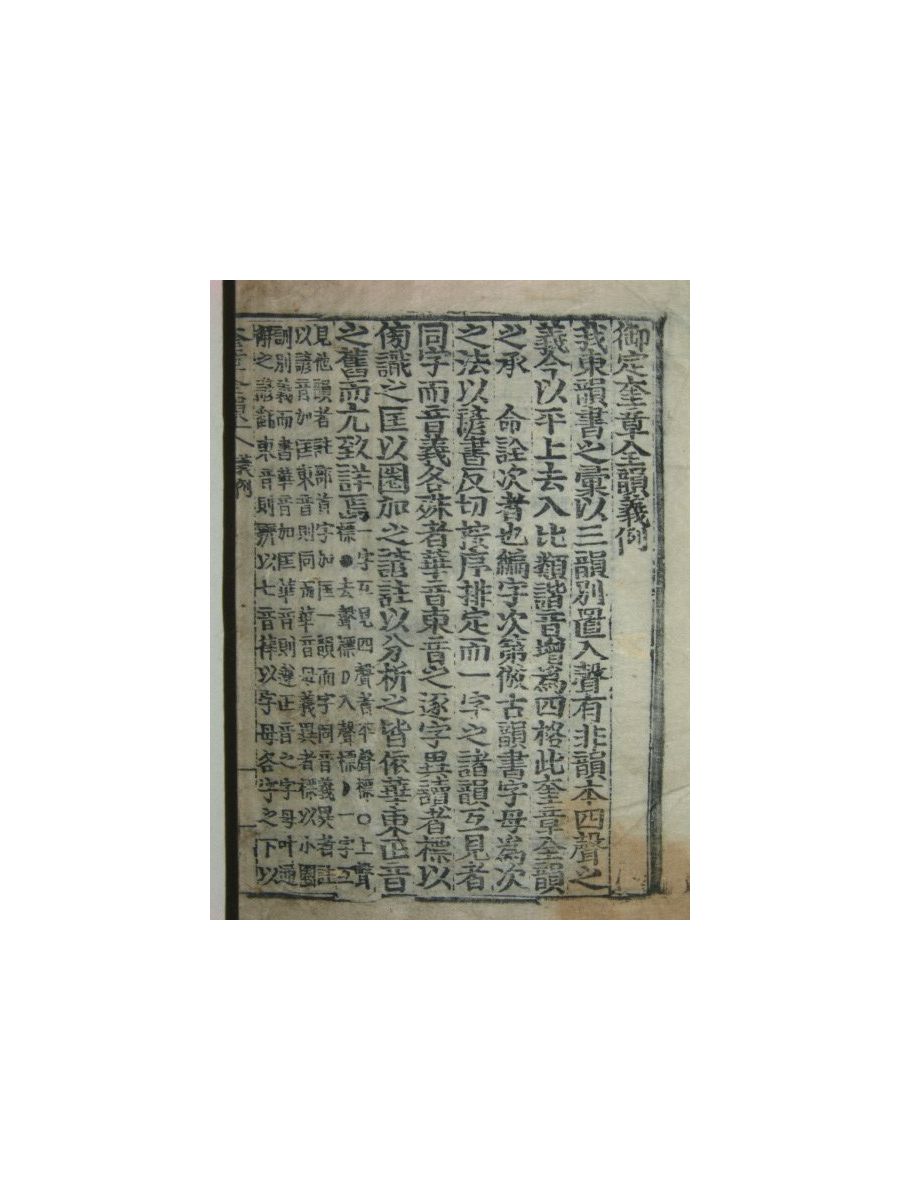 御定奎章全韻義例
我東韻書之彙以三韻別置入聲有非韻本四聲之
義今以平上去入比類諧音增為四格此奎章全韻
之承　命詮次者也編字次第倣古韻書字母為次
之法以諺書反切按序排定而一字之諸韻互見者
同字而音義各殊者華音東音之逐字異讀者標以
傍識之匡以圈加之諠註以分析之皆依華東正音
之舊而尤致詳焉
一字互見四聲者平聲標○上聲
標●去聲標◗入聲標◗一字互
見他韻者註部首字加匡一韻而字同音義異者註
以諺音加匡東音則同而華音母義異者標以小圈
訓別義而書華音加匡華音則遵正音之字母叶通
解之諺翻東音則以七音諧以字母各字之下以
奎章全韻 義例 一